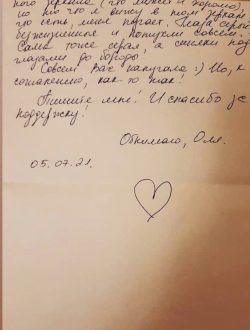 ного зеркала (что может и хорошо),
но то что я вижу в том зеркале
что есть, меня пугает. Глаза серые
безжизненные и потухли совсем.
Сама тоже серая, а синяки под
глазами до бороды.
Совсем Вас напугала :) Но, к
сожалению, как-то так!
Пишите мне! И спасибо за
поддержку!
Обнимаю, Оля.
05.07.21.